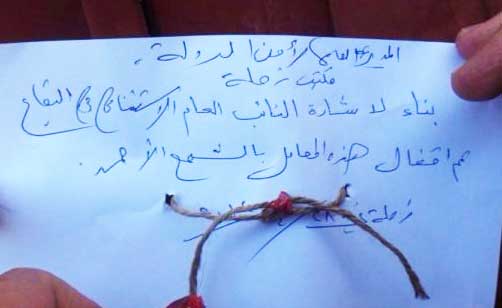 المديرية العامة لأمن الدولة.
مكتب زحلة
بناء لاشارة النائب العام الاستئنافي في البقاع
تم اقفال هذه المعامل بالشمع الأحمر.
زحلة في